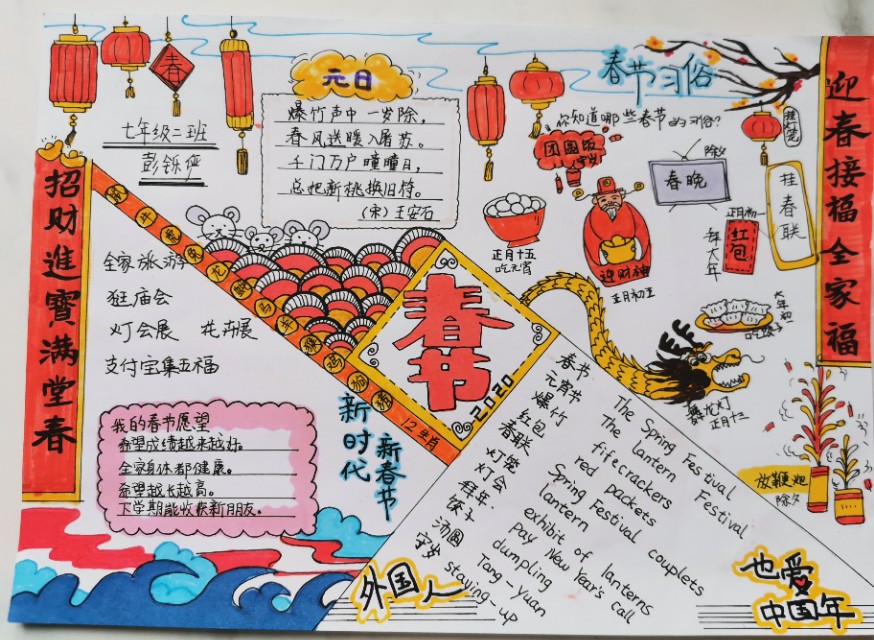 春
七年级二班
元日
爆竹声中一岁除,
春风送暖入屠苏。
千门万户曈曈日,
总把新桃换旧符。
(宋)王安石
春节习俗
你知道哪些春节的习俗?
团圆饭
除夕
春晚
挂灯笼
挂春联
正月初一
拜大年
红包
迎财神
正月初五
正月十五
吃元宵
大年初一
吃饺子
舞龙灯
正月十三
放鞭炮
除夕
招财進寳满堂春
迎春接福全家福
全家旅游
逛庙会
灯会展 花卉展
支付宝集五福
我的春节愿望
希望成绩越来越好。
全家身体都健康。
希望越长越高。
下学期能收获新朋友。
12生肖
春节
2020
新时代
新春节
春节
元宵节
爆竹
红包
春联
灯笼
灯会
拜年.
饺子
汤圆
守岁
The Spring Festival
The lantern Festival
fifecrackers
red packets
Spring Festival couplets
lantern
exhibit of lanterns
Pay New Year's call
dumpling
Tang-Yuan
staying-up
外国人
也爱
中国年